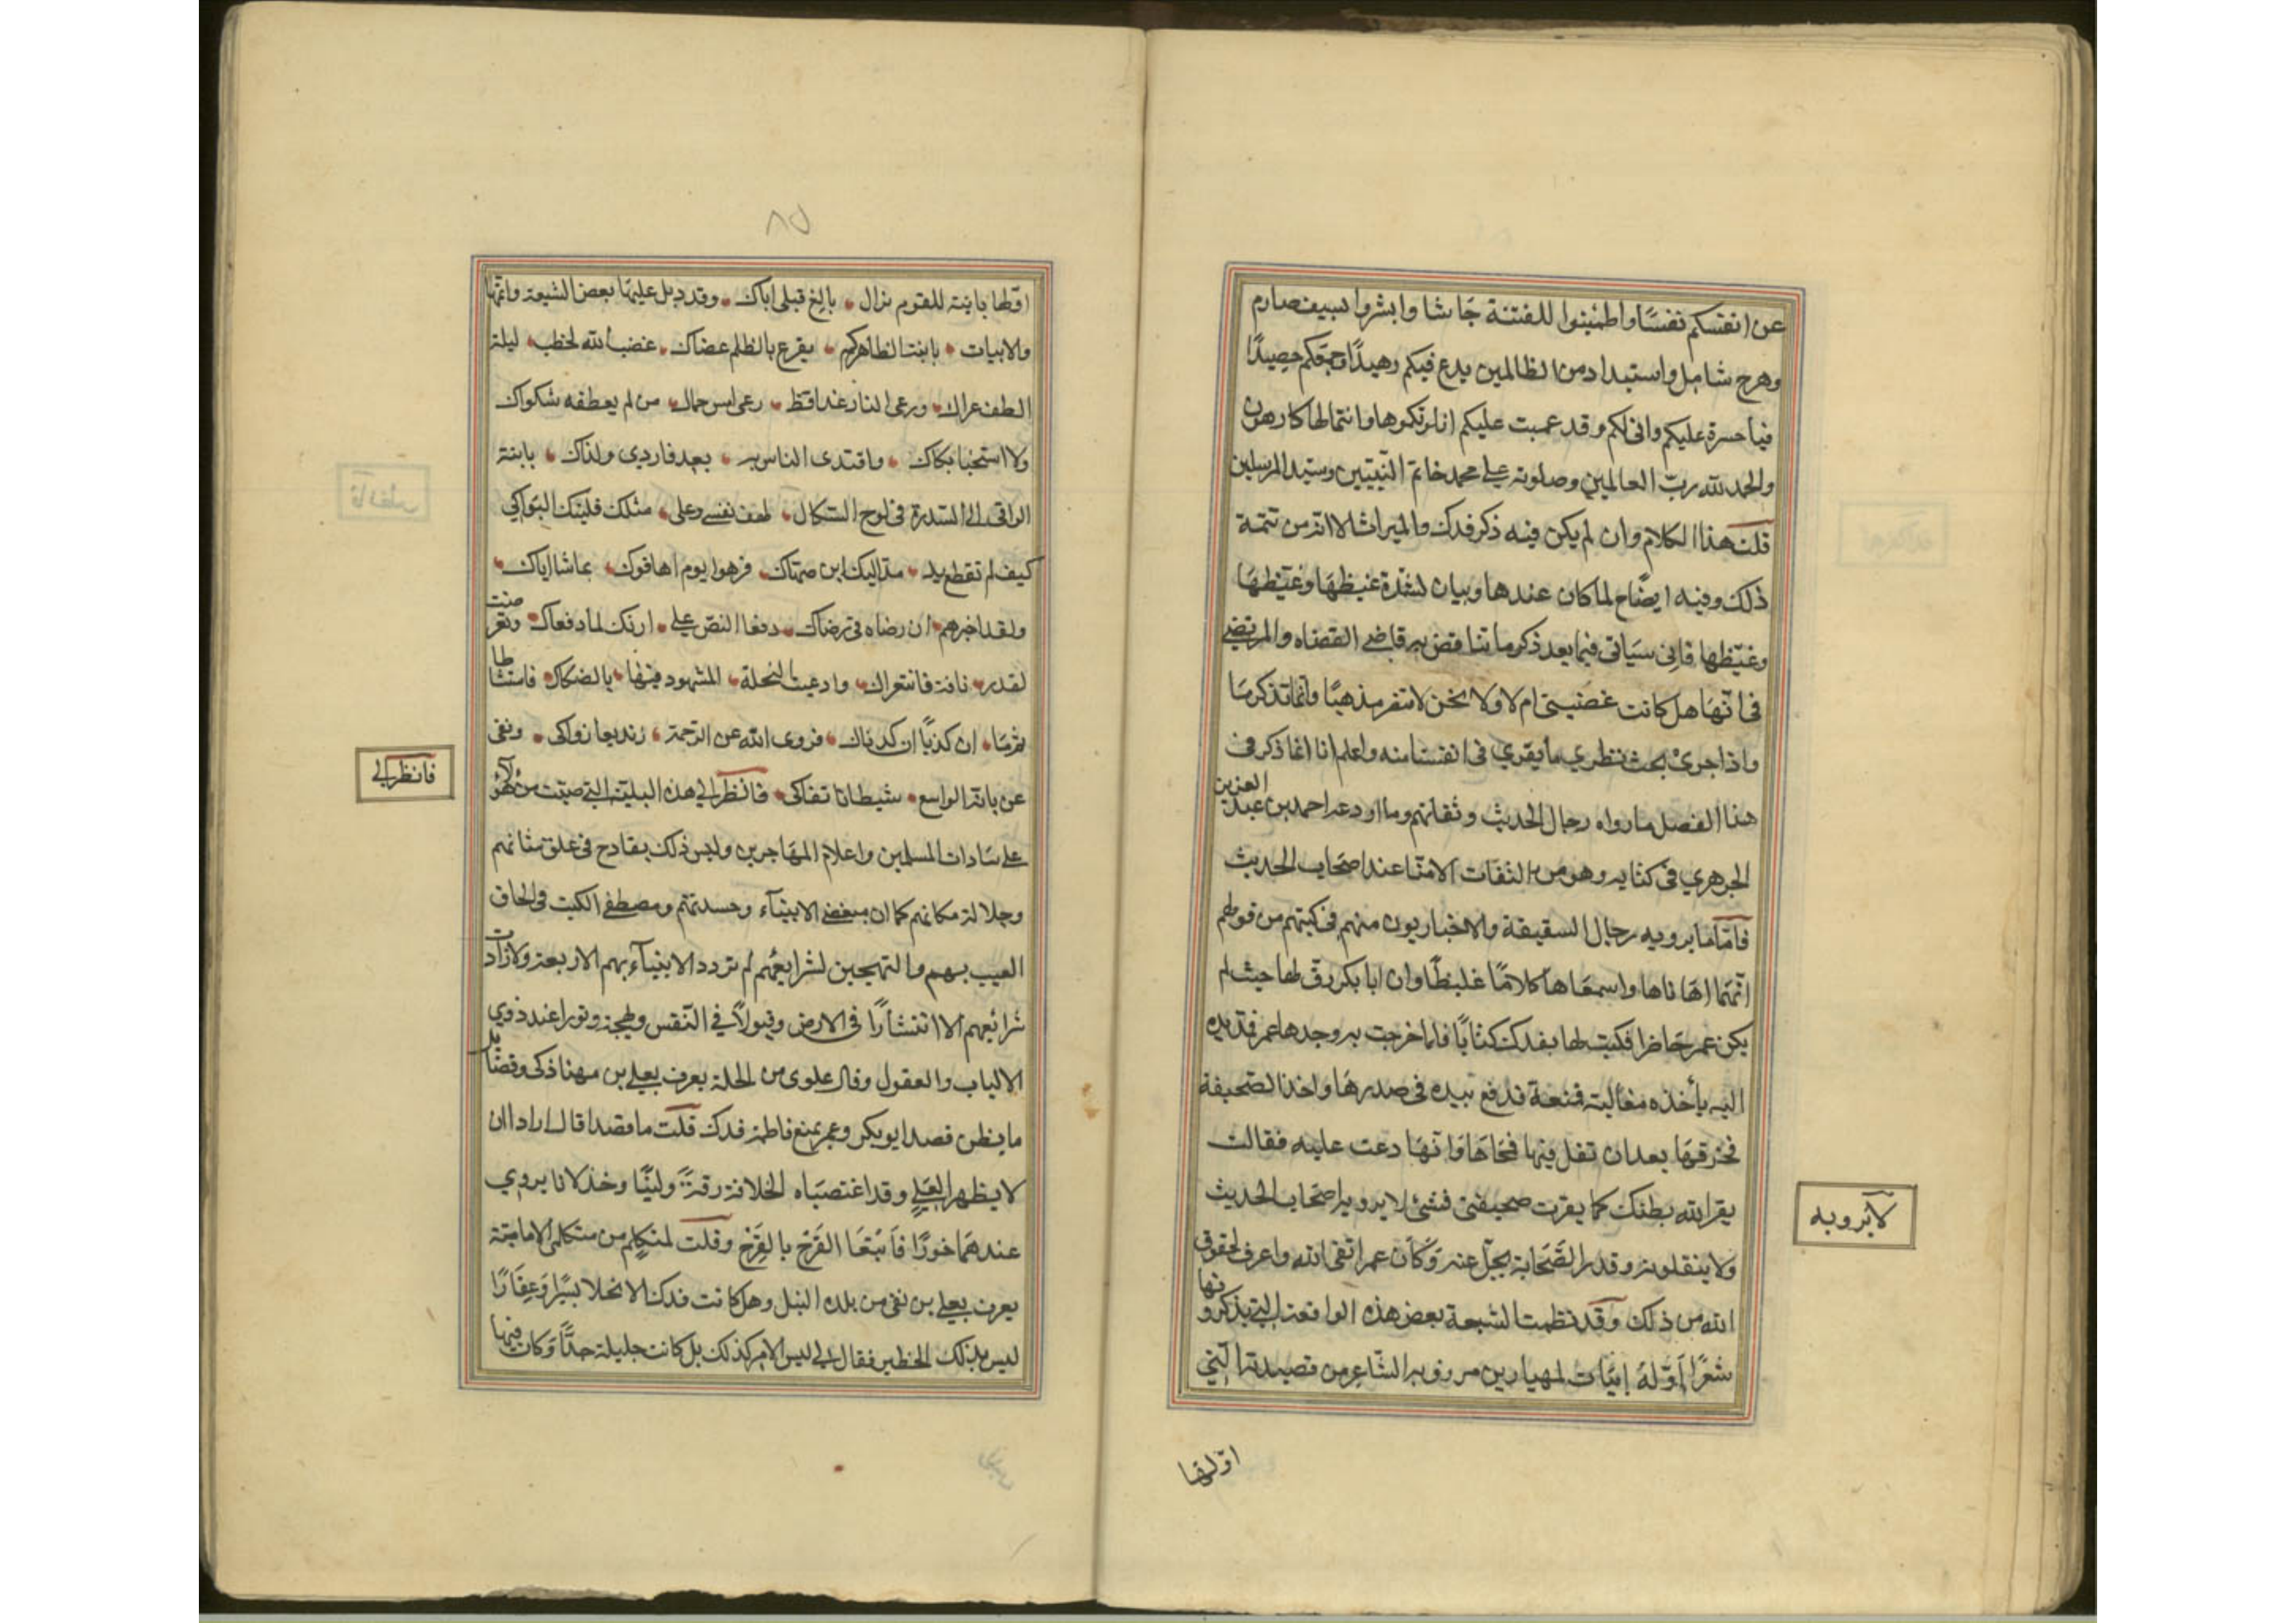 عن انفسكم نفسًا واطمئنوا للفتنة جاشا وابشروا بسيف صارم
وهرج شامل واستبداد من الظالمين يدع فيكم وهيدًا وجمعكم حصيدًا
فيا حسرة عليكم وانى لكم وقد عميت عليكم انلزمكموها وانتم لها كارهون
والحمد لله رب العالمين وصلوته على محمد خاتم النبيين وسيد المرسلين
قلت هذا الكلام وان لم يكن فيه ذكر فدك والميراث الا انه من تتمة
ذلك وفيه ايضاح لما كان عندها وبيان لشدة غيظها وغيظها
وغيظها فانى سياتى فيما بعد ذكر ما تناقض به قاضى القضاه والمرتضى
فى انها هل كانت غضبت ام لا ولا نحن لا ننصر مذهبًا وانما نذكر ما
واذا جرى بحث نظرى ما يقرى فى انفسنا منه واعلم انا انما ذكر فى
هذا الفصل ما رواه رجال الحديث وثقاتهم وما اودعه احمد بن عبد العزيز
الجوهرى فى كتابه وهو من الثقات الامنا عند اصحاب الحديث
فاما ما يرويه رجال السقيفة والاخباريون منهم فى كتبهم من قولهم
انهما اهاناها واسمعاها كلامًا غليظًا وان ابا بكر رق لها حيث لم
يكن عمر حاضرا فكتب لها بفدك كتابًا فلما خرجت به وجدها عمر فمد يده
اليه ياخذه مغالبة فمنعة فدفع بيده فى صدرها واخذ الصحيفة
فخرقها بعد ان تفل فيها فمحاها وانها دعت عليه فقالت
بقر الله بطنك كما بقرت صحيفتى فشئ لا يرويه اصحاب الحديث
ولا ينقلونه وقدر الصحابة يجل عنه وكان عمر اتقى الله واعرف لحقوق
الله من ذلك وقد نظمت الشيعة بعض هذه الواقعة التى يذكرونها
شعرًا اوله ابيات لمهيار بن مرزويه الشاعر من قصيدته التى
لا يرويه
اولها
٨٥
اولها يا ابنة للقوم تزال بالغ قبلى اباك وقد ديل عليها بعض الشيعة واتمها
والابيات يا ابنة الطاهر كم يقرع بالظلم عصاك غضب الله لخطب ليلة
الطف عراك ورعى النار غدا قط رعى امس حماك من لم يعطفه شكواك
ولا استحيا بكاك واقتدى الناس به بعد فاردى ولداك يا ابنة
الراقى الى السدرة فى لوح السكاك لهف نفسى وعلى مثلك فلتبك البواكى
كيف لم تقطع يد مد اليك ابن صهاك فرحوا يوم اهانوك بما شا اباك
ولقد اخبرهم ان رضاه فى رضاك دفعا النص على ارثك لما دفعاك وتعرضت
لقدر تافه فانتهراك وادعيت النحلة المشهود فيها بالصكاك فاستشاطا
ثم ما ان كذبا ان كذباك فزوى الله عن الرحمة زنديقا زواكى ونفى
عن بابه الواسع شيطانا نفاكى فانظر الى هذه البلية التى صبت من هؤلآء
على سادات المسلمين واعلام المهاجرين وليس ذلك بقادح فى علو شانهم
وجلالة مكانهم كما ان مبغضى الانبيآء وحسدتهم ومصطفى الكتب فى الحاق
العيب بهم والتهجين لشرايعهم لم تزدد الانبيآء بهم الا رفعة ولا زادت
شرائعهم الا انتشارًا فى الارض وقبولًا فى النفس وبهجة ونورا عند ذوى
الالباب والعقول وقال علوى من الحلة يعرف بعلى بن مهنا ذكى وفضايل
ما يظن قصد ابو بكر وعمر بمنع فاطمة فدك قلت ما قصدا قال ارادا ان
لا يظهرا لعلى وقد اغتصباه الخلافة رقة ولينًا وخذلانا يروى
عندهما خورًا فاتبعا القرح بالقرح وقلت لمتكلم من متكلمى الامامية
يعرف بعلى بن نقى من بلده النيل وهل كانت فدك الا نخلا يسيرا وعقارًا
ليس بذلك الخطير فقال لى ليس الامر كذلك بل كانت جليلة جدًا وكان فيها
فانظر الى